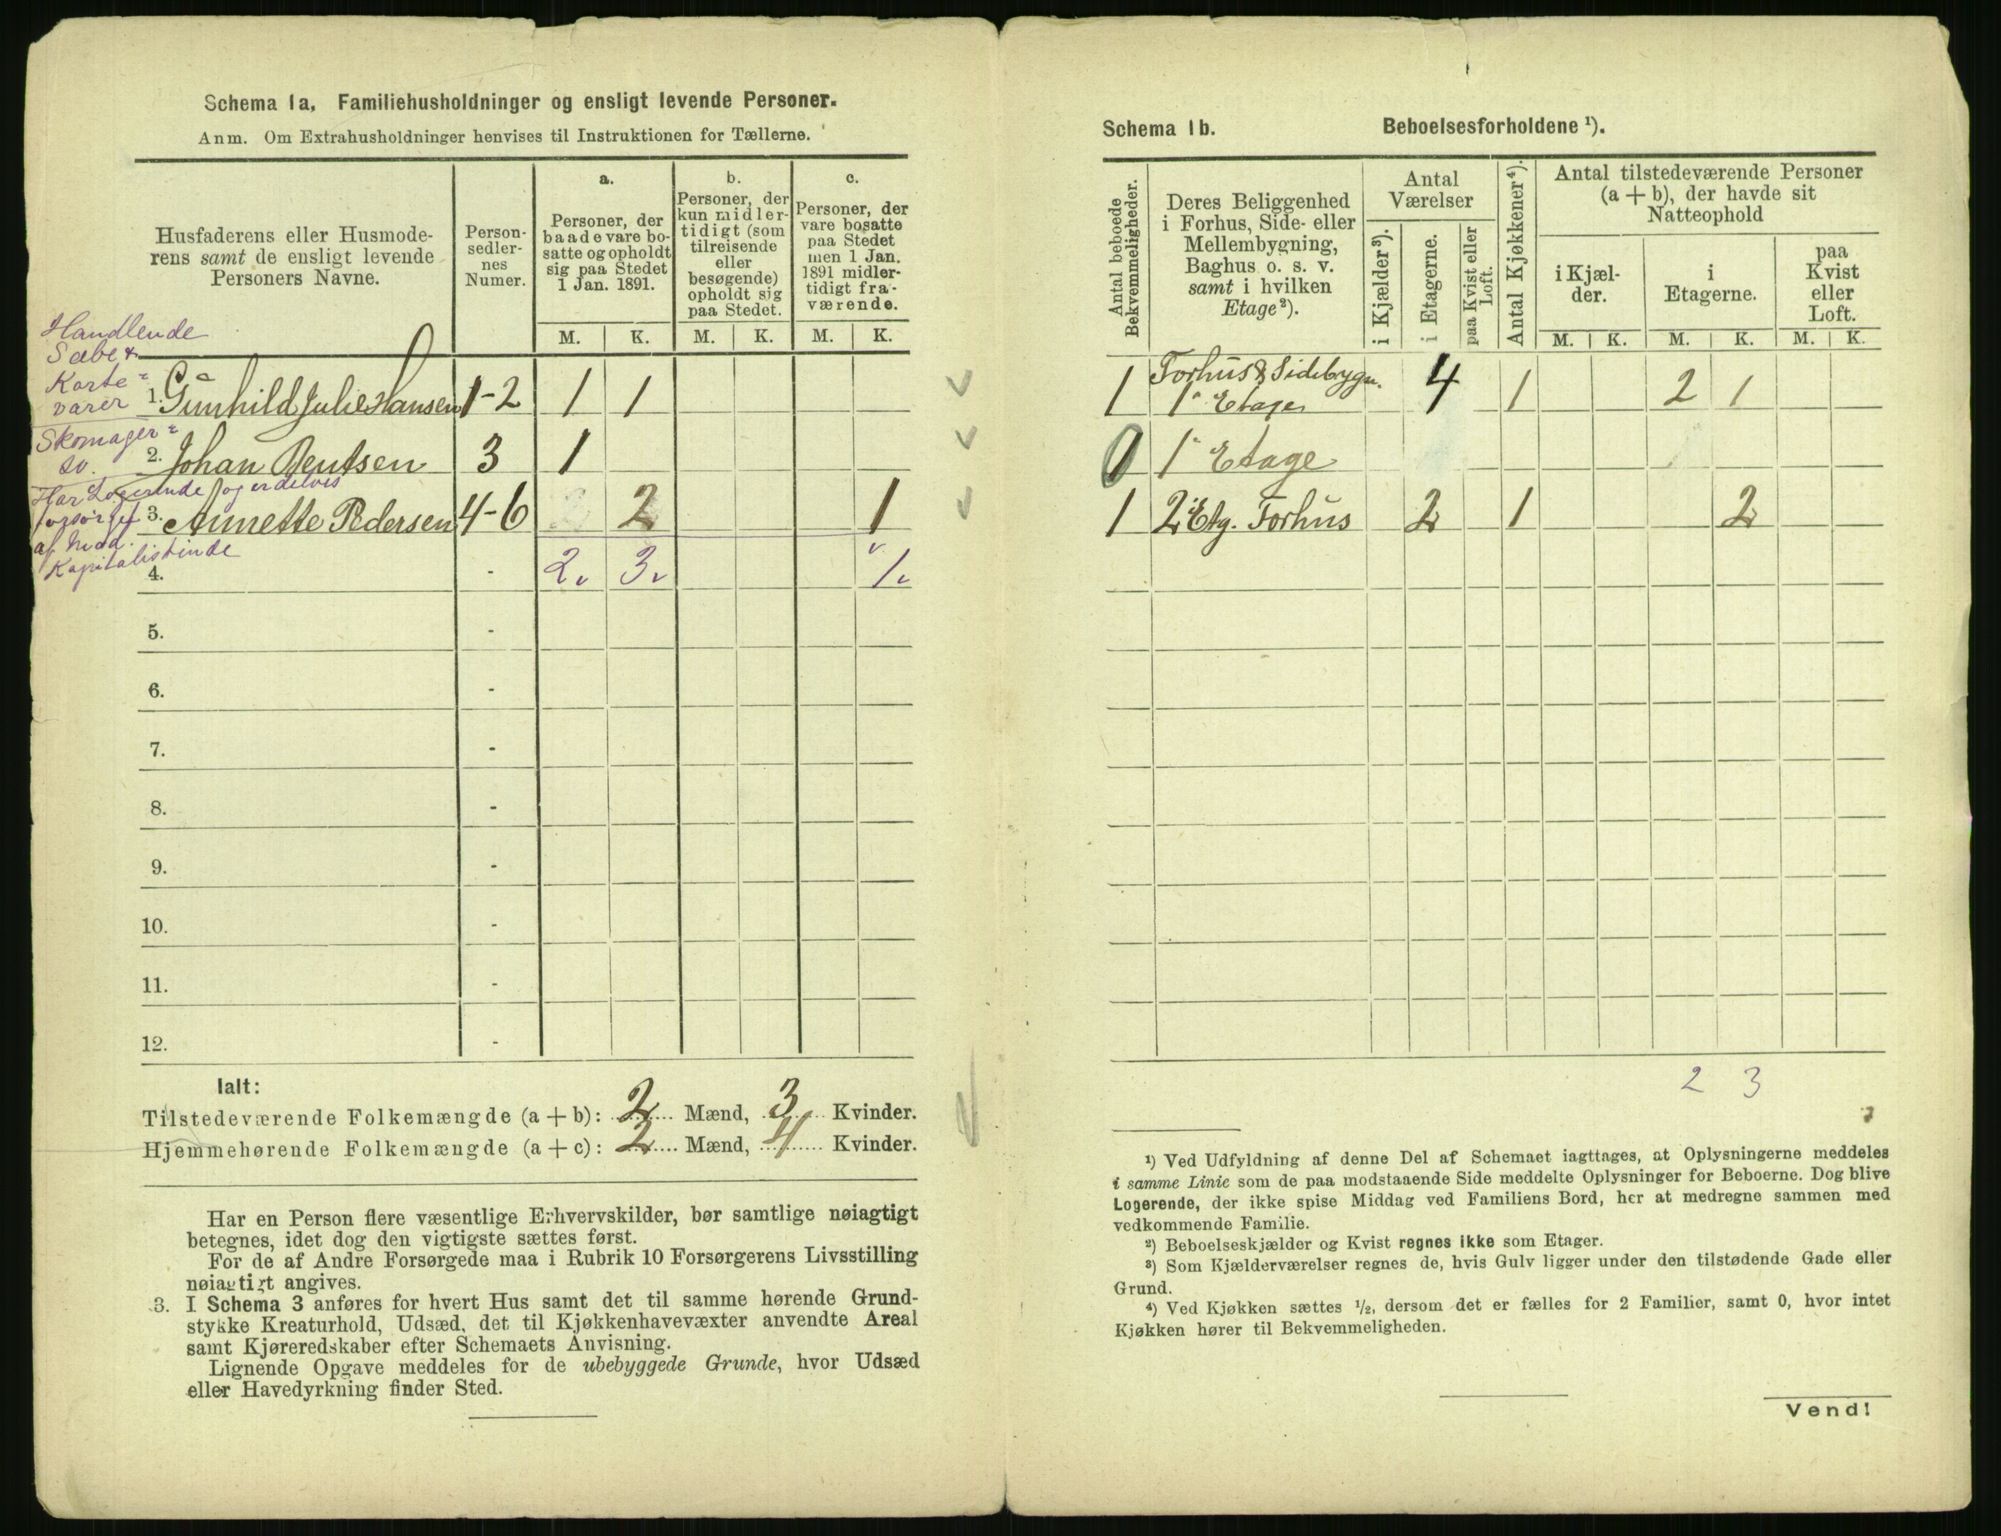 Schema 1a, Familiehusholdninger og ensligt levende Personer.
Anm. Om Extrahusholdninger henvises til Instruktionen for Tællerne.
Husfaderens eller Husmode-
rens samt de ensligt levende
Personers Navne.
Person-
sedler-
nes
Numer.
a.
Personer, der
baade vare bo-
satte og opholdt
sig paa Stedet
1 Jan. 1891.
b.
Personer, der
kun midler-
tidigt (som
tilreisende
eller
besøgende)
opholdt sig
paa Stedet.
c.
Personer, der
vare bosatte
paa Stedet
men 1 Jan.
1891 midler-
tidigt fra-
værende.
M. K. M. K. M. K.
Handlende
Sæbe &
Korte-
varer
1. Gunhild Julie Hansen 1-2 1 1
Skomager-
sv.
2. Johan Bentsen 3 1
Har Logerende og er delvis
forsørget
3. Annette Pedersen 4-6 2 1
af
Kapitalistinde
4. - 2 3 1
5. -
6. -
7. -
8. -
9. -
10. -
11. -
12. -
Ialt:
Tilstedeværende Folkemængde (a + b): 2 Mænd, 3 Kvinder.
Hjemmehørende Folkemængde (a + c): 2 Mænd, 4 Kvinder.
Har en Person flere væsentlige Erhvervskilder, bør samtlige nøiagtigt
betegnes, idet dog den vigtigste sættes først.
For de af Andre Forsørgede maa i Rubrik 10 Forsørgerens Livsstilling
nøiagtigt angives.
3. I Schema 3 anføres for hvert Hus samt det til samme hørende Grund-
stykke Kreaturhold, Udsæd, det til Kjøkkenhavevæxter anvendte Areal
samt Kjøreredskaber efter Schemaets Anvisning.
Lignende Opgave meddeles for de ubebyggede Grunde, hvor Udsæd
eller Havedyrkning finder Sted.
Schema 1b. Beboelsesforholdene ¹).
Antal beboede
Bekvemmeligheder.
Deres Beliggenhed
i Forhus, Side- eller
Mellembygning,
Baghus o. s. v.
samt i hvilken
Etage²).
Antal
Værelser
i Kjælder³).
i Etagerne.
paa Kvist eller
Loft.
Antal Kjøkkener⁴).
Antal tilstedeværende Personer
(a + b), der havde sit
Natteophold
i Kjæl-
der.
i
Etagerne.
paa
Kvist
eller
Loft.
M. K. M. K. M. K.
Forhus & Sidebygn.
1 1' Etage 4 1 2 1
0 1' Etage
1 2 Etg. Forhus 2 1 2
2 3
¹) Ved Udfyldning af denne Del af Schemaet iagttages, at Oplysningerne meddeles
i samme Linie som de paa modstaaende Side meddelte Oplysninger for Beboerne. Dog blive
Logerende, der ikke spise Middag ved Familiens Bord, her at medregne sammen med
vedkommende Familie.
²) Beboelseskjælder og Kvist regnes ikke som Etager.
³) Som Kjælderværelser regnes de, hvis Gulv ligger under den tilstødende Gade eller
Grund.
⁴) Ved Kjøkken sættes ½, dersom det er fælles for 2 Familier, samt 0, hvor intet
Kjøkken hører til Bekvemmeligheden.
Vend!